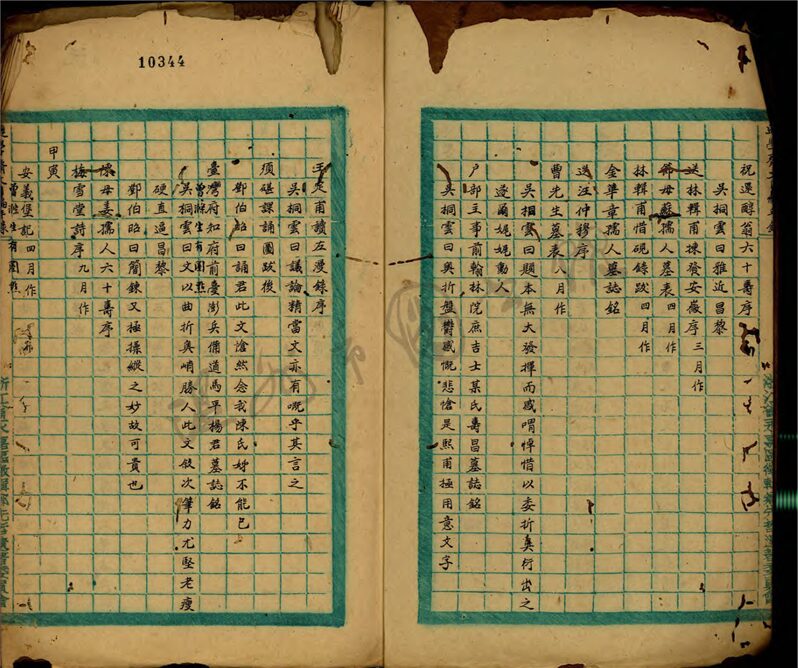 祝選醇翁六十壽序
吳桐雲曰雅近昌黎
送林輯甫捸發安徽序三月作
鄭母蘇孺人墓表四月作
林輯甫惜硯錄跋四月作
金翠章孺人墓誌銘
送汪仲穆序
曹先生墓表八月作
逶爾娓娓動人
吳桐雲曰題本無大發揮而感喟悼惜以委折奧衍出之
戶部主事前翰林院庶吉士某氏壽昌墓誌銘
吳桐雲曰奧折盤鬱感慨悲愴是熙甫極用意文字
10344
王定甫讀左漫錄序
吳桐雲曰議論精當文亦有嘅乎其言之
須碪課誦圖跋後
鄧伯昭曰誦君此文愴然念我陳氏姊不能已
臺灣府知府前臺澎兵備道馬平楊君墓誌銘
曾滌生有圈點
吳桐雲曰文以曲折奧峭勝人此文敘次筆力尤堅老瘦
硬直逼昌黎
鄧伯昭曰簡鍊又極操縱之妙故可貴也
懷母姜孺人六十壽序
梅雪堂詩序九月作
甲寅
安義堡記四月作
曾滌生有圈點